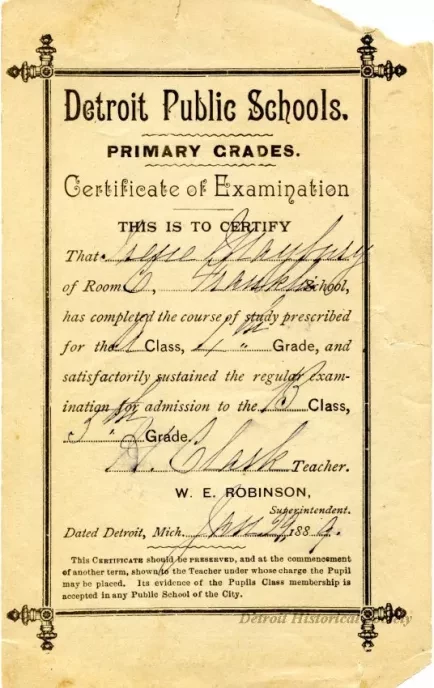 Detroit Public Schools.
PRIMARY GRADES.
Certificate of Examination
THIS IS TO CERTIFY
That Irene Maybury
of Room 6, Franklin School,
has completed the course of study prescribed
for the A Class, 4th " Grade, and
satisfactorily sustained the regular exam-
ination for admission to the B Class,
5th " Grade.
H. Clark Teacher.
W. E. ROBINSON,
Superintendent.
Dated Detroit, Mich. Jan 29, 1889.
This CERTIFICATE should be PRESERVED, and at the commencement
of another term, shown to the Teacher under whose charge the Pupil
may be placed. Its evidence of the Pupils Class membership is
accepted in any Public School of the City.
Detroit Historical Society